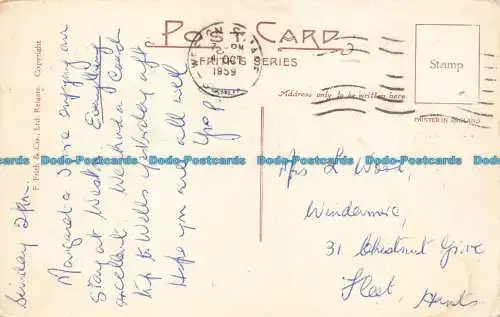 POST CARD
FRITH'S SERIES
7-PM
OCT
1959
Stamp
Address only to be written here
PRINTED IN ENGLAND
F. Frith & Co., Ltd. Reigate. Copyright
Sunday 2pm
Margaret & I are enjoying our
stay at West. Everything
excellent. We had a Coach
trip to Wells yesterday aft.
Hope you are all well
Mrs L Wood,
Windermere,
31 Chestnut Grove
Fleet, Hants
Postcards-Info.com Postcards-Info.com Postcards-Info.com Postcards-Info.com